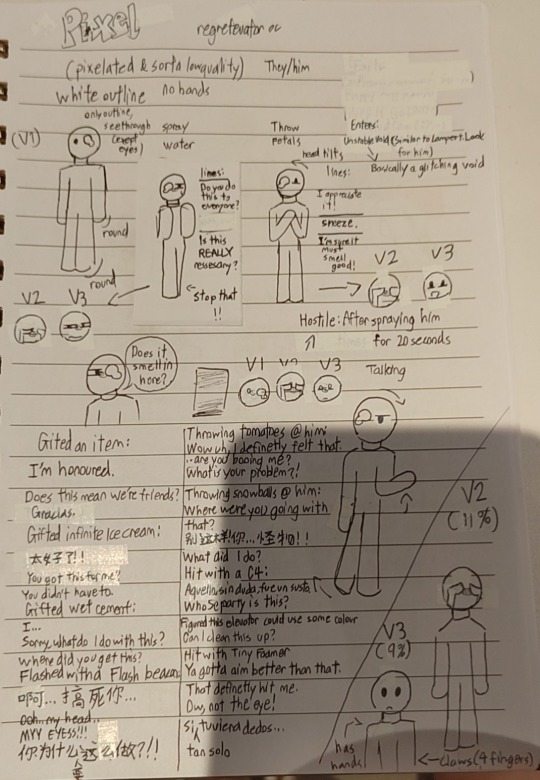 Pixel
regretevator oc
(pixelated & sorta lowquality) They/him
white outline no hands
(V1)
only outline, seethrough (except eyes)
spray water
Throw petals
Enters:
Unstable Void (Similar to Lampert. Look for him)
Basically a glitching void
head tilts
lines:
Do you do this to everyone?
Is this REALLY nessesary?
Stop that !!
lines:
I appreciate it!
sneeze.
I'm sure it must smell good!
round
round
V2 V3
V2 V3
Hostile: After spraying him for 20 seconds
Does it smell in here?
V1 V2 V3
Talking
Gifted an item:
I'm honoured.
Does this mean we're friends?
Gracias.
Gifted infinite Ice cream:
太好了!!
You got this for me?
You didn't have to.
Gifted wet cement:
I...
Sorry, what do I do with this?
Where did you get this?
Flashed with a Flash beacon
啊... 搞死你...
Ooh.. my head...
MYY EYESS!!!
你为什么这么做?!!
Throwing tomatoes @ him:
Wow uh, I definetly felt that.
..are you booing me?
What is your problem?!
Throwing snowballs @ him:
Where were you going with that?
别这样!你...怪物!!
What did I do?
Hit with a C4:
Aquello, sin duda, fue un susto.
Whose party is this?
Figured this elevator could use some colour
Can I clean this up?
Hit with Tiny Foamer
Ya gotta aim better than that.
That definetly hit me.
Ow, not the eye!
Si, tuviera dedos...
tan solo
V2
(11%)
V3
(9%)
has hands
claws (4 fingers)